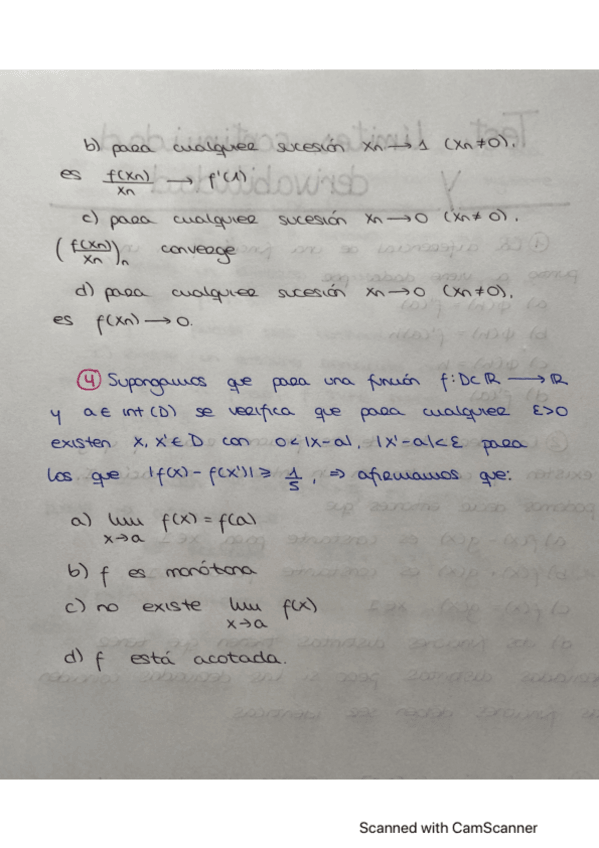 b) para cualquier sucesión xn → 1 (xn ≠ 0),
es f(xn)/xn → f'(1)
c) para cualquier sucesión xn → 0 (xn ≠ 0),
(f(xn)/xn)n converge
d) para cualquier sucesión xn → 0 (xn ≠ 0),
es f(xn) → 0.
4 Supongamos que para una función f: D ⊂ ℝ → ℝ
y a ∈ int (D) se verifica que para cualquier ε>0
existen x, x' ∈ D con 0 < |x-a|, |x'-a| < ε para
los que |f(x) - f(x')| ≥ 1/5, ⇒ afirmamos que:
a) lim x→a f(x) = f(a)
b) f es monótona
c) no existe lim x→a f(x)
d) f está acotada.
Scanned with CamScanner